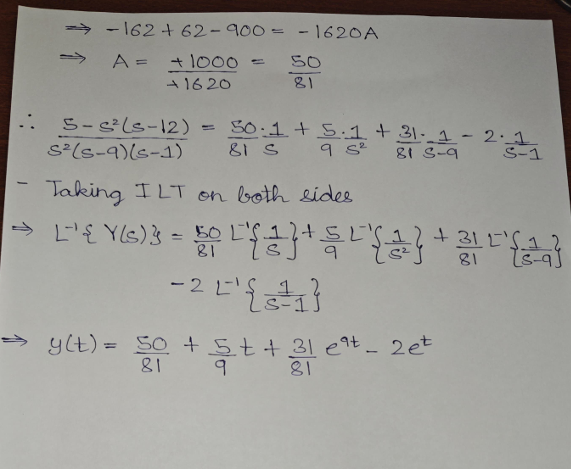 ⇒ -162 + 62 - 900 = -1620A
⇒ A = +1000/+1620 = 50/81
∴ 5-s²(s-12)/s²(s-9)(s-1) = 50/81 · 1/s + 5/9 · 1/s² + 31/81 · 1/s-9 - 2 · 1/s-1
- Taking ILT on both sides
⇒ L⁻¹{Y(s)} = 50/81 L⁻¹{1/s} + 5/9 L⁻¹{1/s²} + 31/81 L⁻¹{1/s-9}
- 2 L⁻¹{1/s-1}
⇒ y(t) = 50/81 + 5/9 t + 31/81 e⁹ᵗ - 2eᵗ